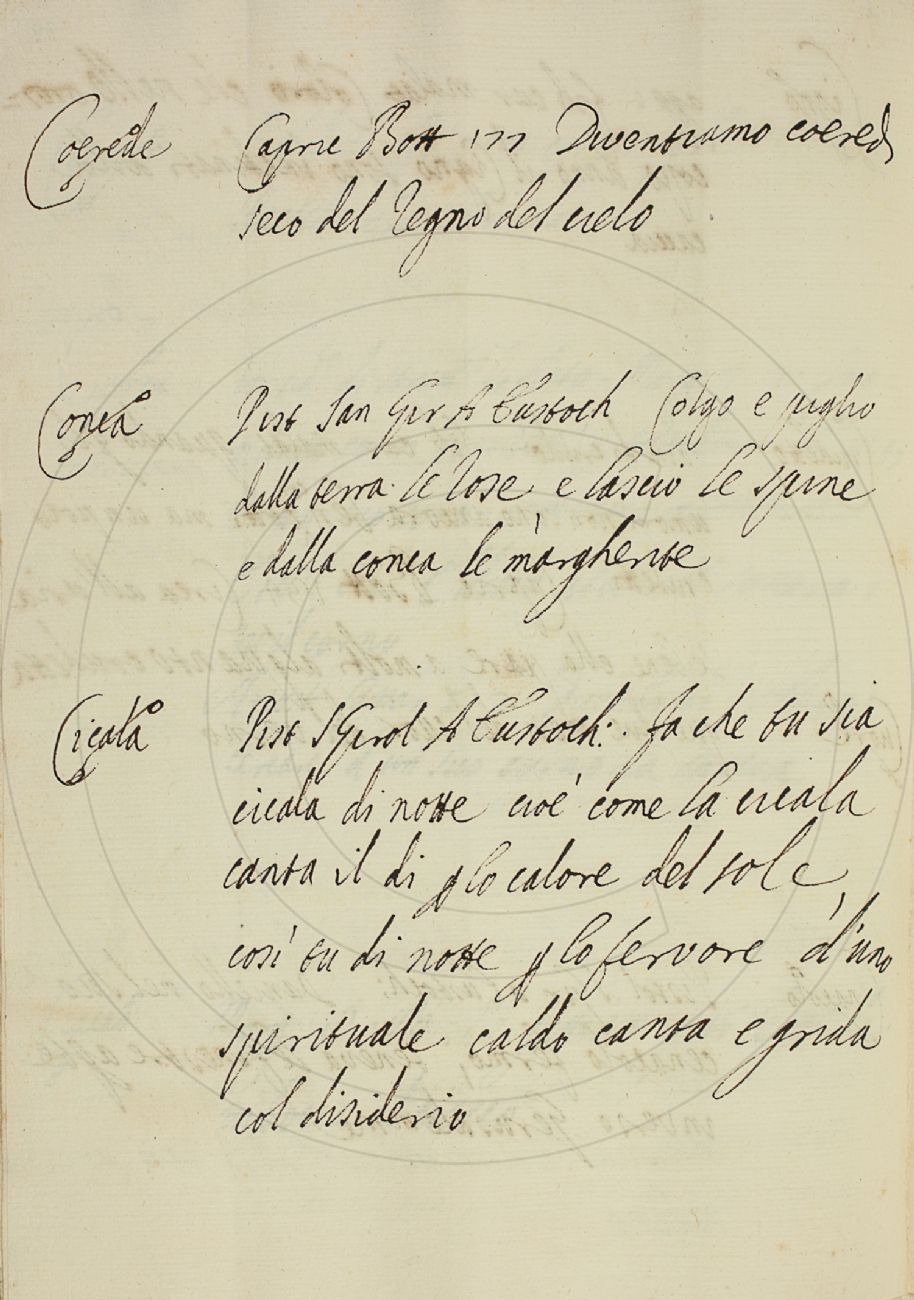 Coerede Capric Bott 177 Diventiamo coeredi
seco del regno del cielo
Conca Pist San Gir A Eustoch Colgo e piglio
dalla terra le rose e lascio le spine
e dalla conca le margherite
Cicala Pist S Girol A Eustoch: fa che tu sia
cicala di notte cioè come la cicala
canta il di p lo calore del sole
così tu di notte p lo fervore d'uno
spirituale caldo canta e grida
col disiderio